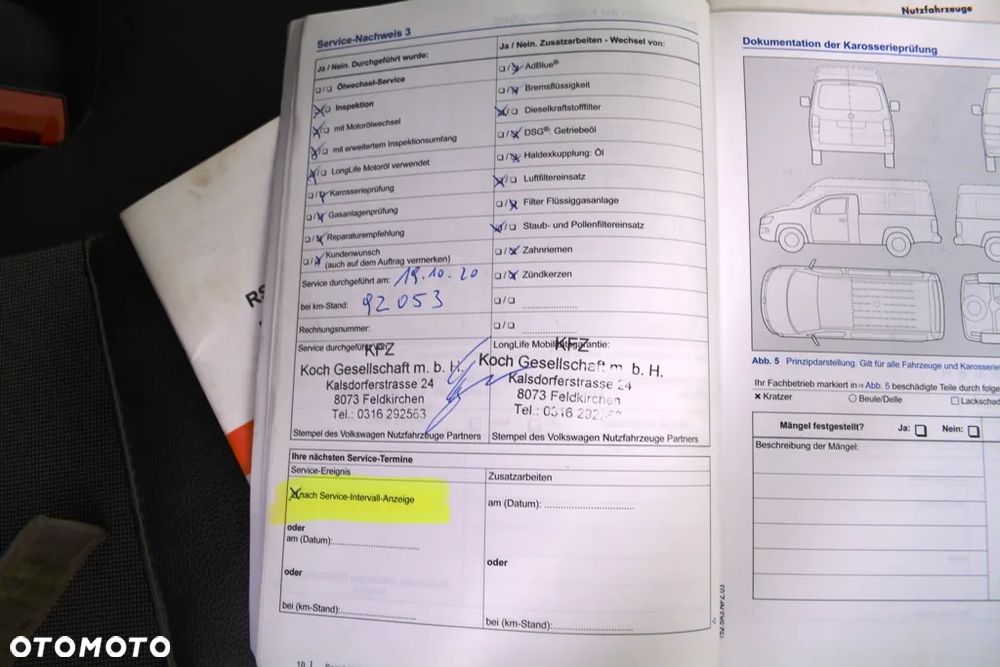 Nutzfahrzeuge
Service-Nachweis 3
Ja / Nein. Durchgeführt wurde:
Ölwechsel-Service
Inspektion
mit Motorölwechsel
mit erweitertem Inspektionsumfang
LongLife Motoröl verwendet
Karosserieprüfung
Gasanlagenprüfung
Reparaturempfehlung
Kundenwunsch
(auch auf dem Auftrag vermerken)
Service durchgeführt am: 19.10.20
bei km-Stand: 92053
Rechnungsnummer:
Service durchgeführt
KFZ
Koch Gesellschaft m. b. H.
Kalsdorferstrasse 24
8073 Feldkirchen
Tel.: 0316 292563
Stempel des Volkswagen Nutzfahrzeuge Partners
Ja / Nein. Zusatzarbeiten - Wechsel von:
AdBlue®
Bremsflüssigkeit
Dieselkraftstofffilter
DSG®: Getriebeöl
Haldexkupplung: Öl
Luftfiltereinsatz
Filter Flüssiggasanlage
Staub- und Pollenfiltereinsatz
Zahnriemen
Zündkerzen
LongLife Mobilitätsgarantie:
KFZ
Koch Gesellschaft m b. H.
Kalsdorferstrasse 24
8073 Feldkirchen
Tel.: 0316
Stempel des Volkswagen Nutzfahrzeuge Partners
Ihre nächsten Service-Termine
Service-Ereignis
nach Service-Intervall-Anzeige
oder
am (Datum):
oder
bei (km-Stand):
Zusatzarbeiten
am (Datum):
oder
bei (km-Stand):
Dokumentation der Karosserieprüfung
Abb. 5 Prinzipdarstellung. Gilt für alle Fahrzeuge und Karosserie
Ihr Fachbetrieb markiert in ⇒ Abb. 5 beschädigte Teile durch folge
Kratzer
Beule/Delle
Lackschad
Mängel festgestellt? Ja: Nein:
Beschreibung der Mängel:
OTOMOTO